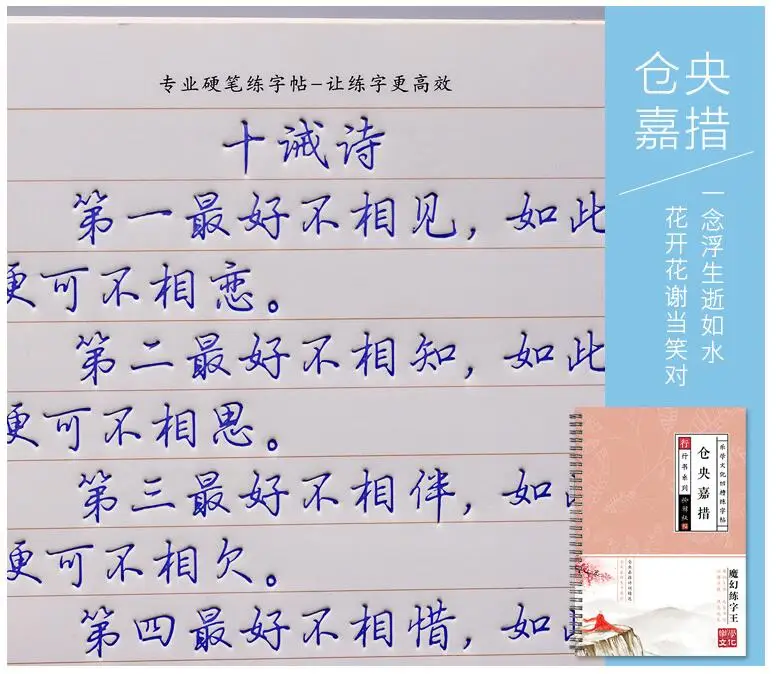 专业硬笔练字帖-让练字更高效
十诫诗
第一最好不相见,如此
便可不相恋。
第二最好不相知,如此
便可不相思。
第三最好不相伴,如此
便可不相欠。
第四最好不相惜,如此
仓央
嘉措
一念浮生逝如水
花开花谢当笑对
行
行书系列
仓央嘉措
魔幻练字王